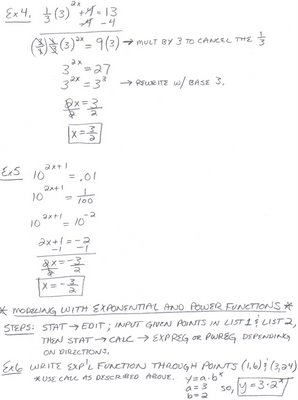 Ex4. 1/3 (3)^2x + 4 = 13
-4 -4
(3/1) 1/3 (3)^2x = 9(3) → MULT BY 3 TO CANCEL THE 1/3
3^2x = 27
3^2x = 3^3 → REWRITE W/ BASE 3.
2x/2 = 3/2
x = 3/2
Ex5 10^2x+1 = .01
10^2x+1 = 1/100
10^2x+1 = 10^-2
2x+1 = -2
-1 -1
2x/2 = -3/2
x = -3/2
* MODELING WITH EXPONENTIAL AND POWER FUNCTIONS *
STEPS: STAT → EDIT; INPUT GIVEN POINTS IN LIST 1 & LIST 2,
THEN STAT → CALC → EXPREG OR PWREG DEPENDING
ON DIRECTIONS.
Ex6 WRITE EXP'L FUNCTION THROUGH POINTS (1,6) & (3,24)
* USE CALC AS DESCRIBED ABOVE. y = a·b^x
a = 3
b = 2 so, y = 3·2^x